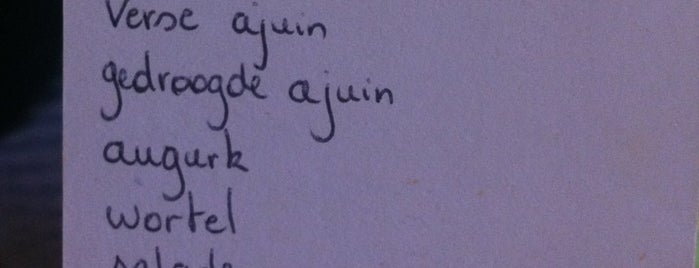 Verse ajuin
gedroogde ajuin
augurk
wortel